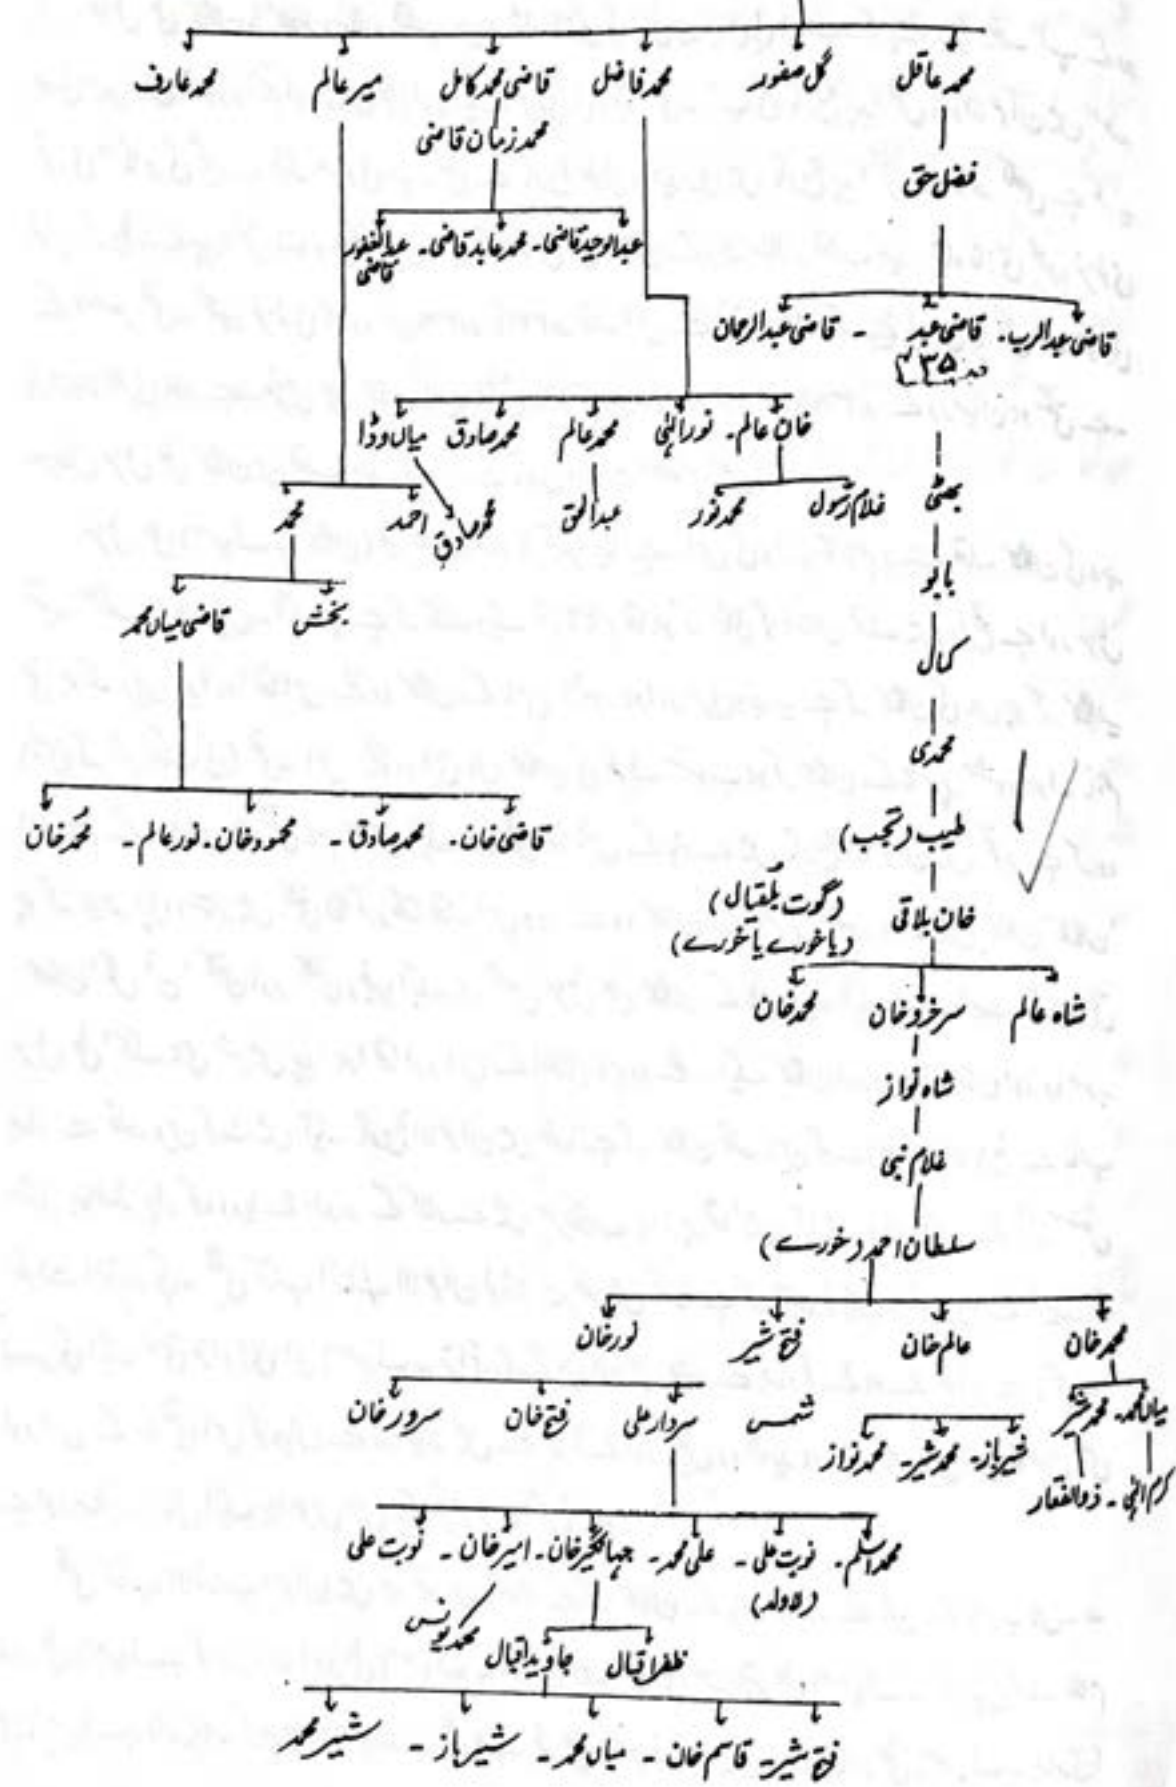 محمد عاقل گل صفور محمد فاضل قاضی محمد کامل میر عالم محمد عارف
محمد زمان قاضی
فضل حق
عبدالوحید قاضی - محمد عابد قاضی - عبدالغفور قاضی
قاضی عبدالرب - قاضی عبد - قاضی عبدالرحمان
خان عالم - نور الٰہی محمد عالم محمد صادق میاں وڈا
بھٹی
غلام رسول محمد نور عبدالحق محمد صادق احمد محمد
بابو
بخش قاضی میاں محمد
کمال
محمدی
قاضی خان - محمد صادق - محمود خان - نور عالم - محمد خان
طیب (تجب)
خان بلاقی (گوت بلقیال)
(یا خورے یا آخورے)
شاہ عالم سرخرو خان محمد خان
شاہ نواز
غلام نبی
سلطان احمد (خورے)
محمد خان عالم خان فتح شیر نور خان
میاں محمد - محمد شیر شمس سردار علی فتح خان سرور خان
شیر باز - محمد شیر - محمد نواز
کرم الٰہی - ذوالفقار
محمد اسلم - نوبت علی - علی محمد - جہانگیر خان - امیر خان - نوبت علی
(لاولد)
محمد یونس
ظفر اقبال جاوید اقبال
فتح شیر - قاسم خان - میاں محمد - شیر باز - شیر محمد